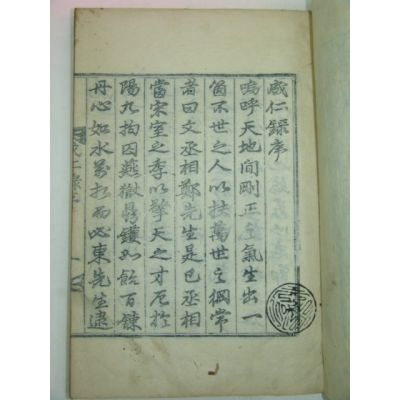 成仁錄序
嗚呼天地間剛正至氣生出一
箇不世之人以扶萬世之綱常
者曰文丞相鄭先生是已丞相
當宋室之季以擎天之才厄於
陽九拘囚燕獄鼎鑊如飴百鍊
丹心如水萬折而必東先生逮
成仁錄序